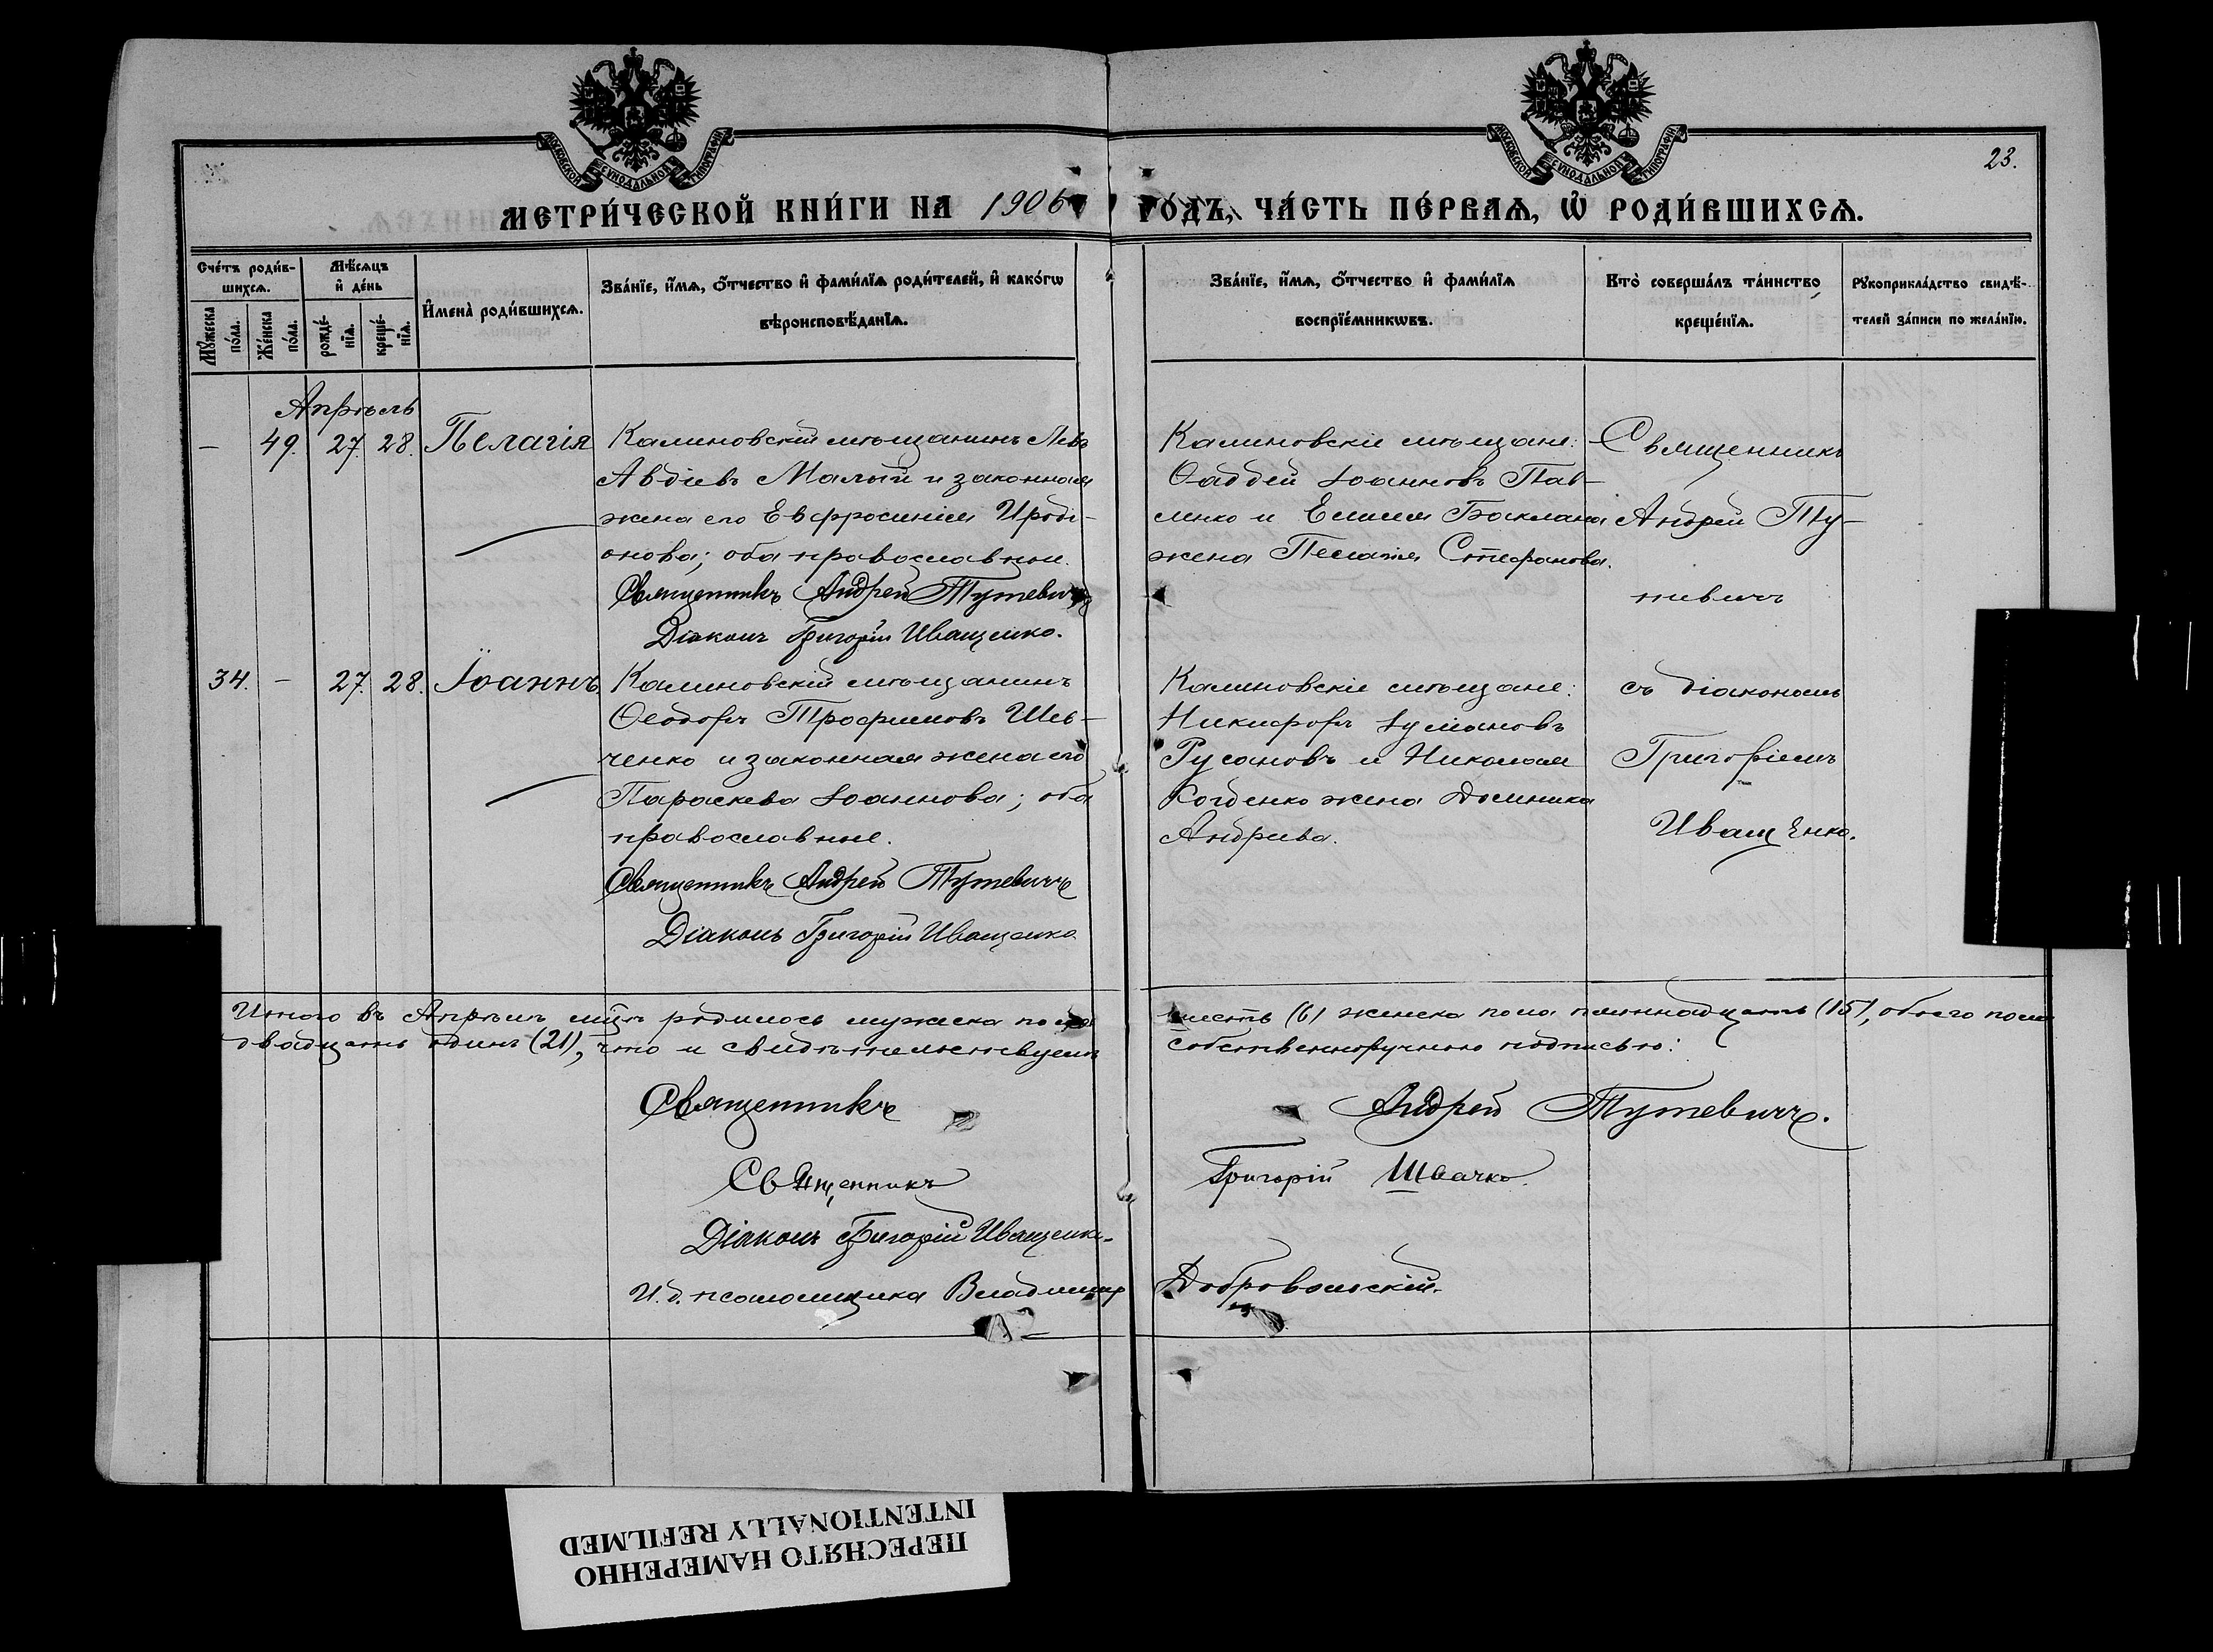 МОСКОВСКОЙ СѴНОДАЛЬНОЙ ТИПОГРАФІИ
МОСКОВСКОЙ СѴНОДАЛЬНОЙ ТИПОГРАФІИ
23.
МЕТРИ́ЧЕСКОЙ КНИ́ГИ НА 1906 ГО́ДЪ, ЧА́СТЬ ПЕ́РВАѦ, Ѡ҆ РОДИ́ВШИХСѦ.
Сче́тъ роди́в-
шихсѧ.
Мꙋ́жеска по́ла.
Же́нска по́ла.
Мѣ́сѧцъ
и҆ де́нь
рожде́-
нїѧ.
креще́-
нїѧ.
И҆мена̀ роди́вшихсѧ.
Зва́нїе, и҆́мѧ, ѻ҆́тчество и҆ фами́лїѧ роди́телей, и҆ како́гѡ
вѣроисповѣ́данїѧ.
Зва́нїе, и҆́мѧ, ѻ҆́тчество и҆ фами́лїѧ
воспрїе́мникѡвъ.
Кто̀ соверша́лъ та́инство
креще́нїѧ.
Рꙋкоприкла́дство свидѣ́-
телей за́писи по жела́нїю.
Апрѣль
— 49. 27. 28. Пелагія
Калиновскій мѣщанинъ Левъ
Авдіевъ Малый и законная
жена его Евфросинія Ироді-
онова; оба православные.
Священникъ Андрей Тутевичъ
Діаконъ Григорій Иващенко.
Калиновскіе мѣщане:
Ѳаддей Іоанновъ Пав-
ленко и Баклана
жена Пелагія Стефанова.
Священникъ
Андрей Ту-
тевичъ
34. — 27. 28. Іоаннъ
Калиновскій мѣщанинъ
Ѳеодоръ Трофимовъ Шев-
ченко и законная жена его
Параскева Іоаннова; оба
православные.
Священникъ Андрей Тутевичъ
Діаконъ Григорій Иващенко
Калиновскіе мѣщане:
Никифоръ Іуліановъ
Русановъ и Николая
жена Домника
Андреева.
съ діакономъ
Григоріемъ
Иващенко.
Итого въ Апрѣлѣ м-цѣ родилось мужеска пола шесть (6) женска пола пятнадцать (15), обоего пола
двадцать одинъ (21), что и свидѣтельствуемъ собственноручною подписью:
Священникъ Андрей Тутевичъ.
Священникъ Григорій Швачко.
Діаконъ Григорій Иващенко.
И.д. псаломщика Владимиръ Добровольскій.
ПЕРЕСНЯТО НАМЕРЕННО
INTENTIONALLY REFILMED